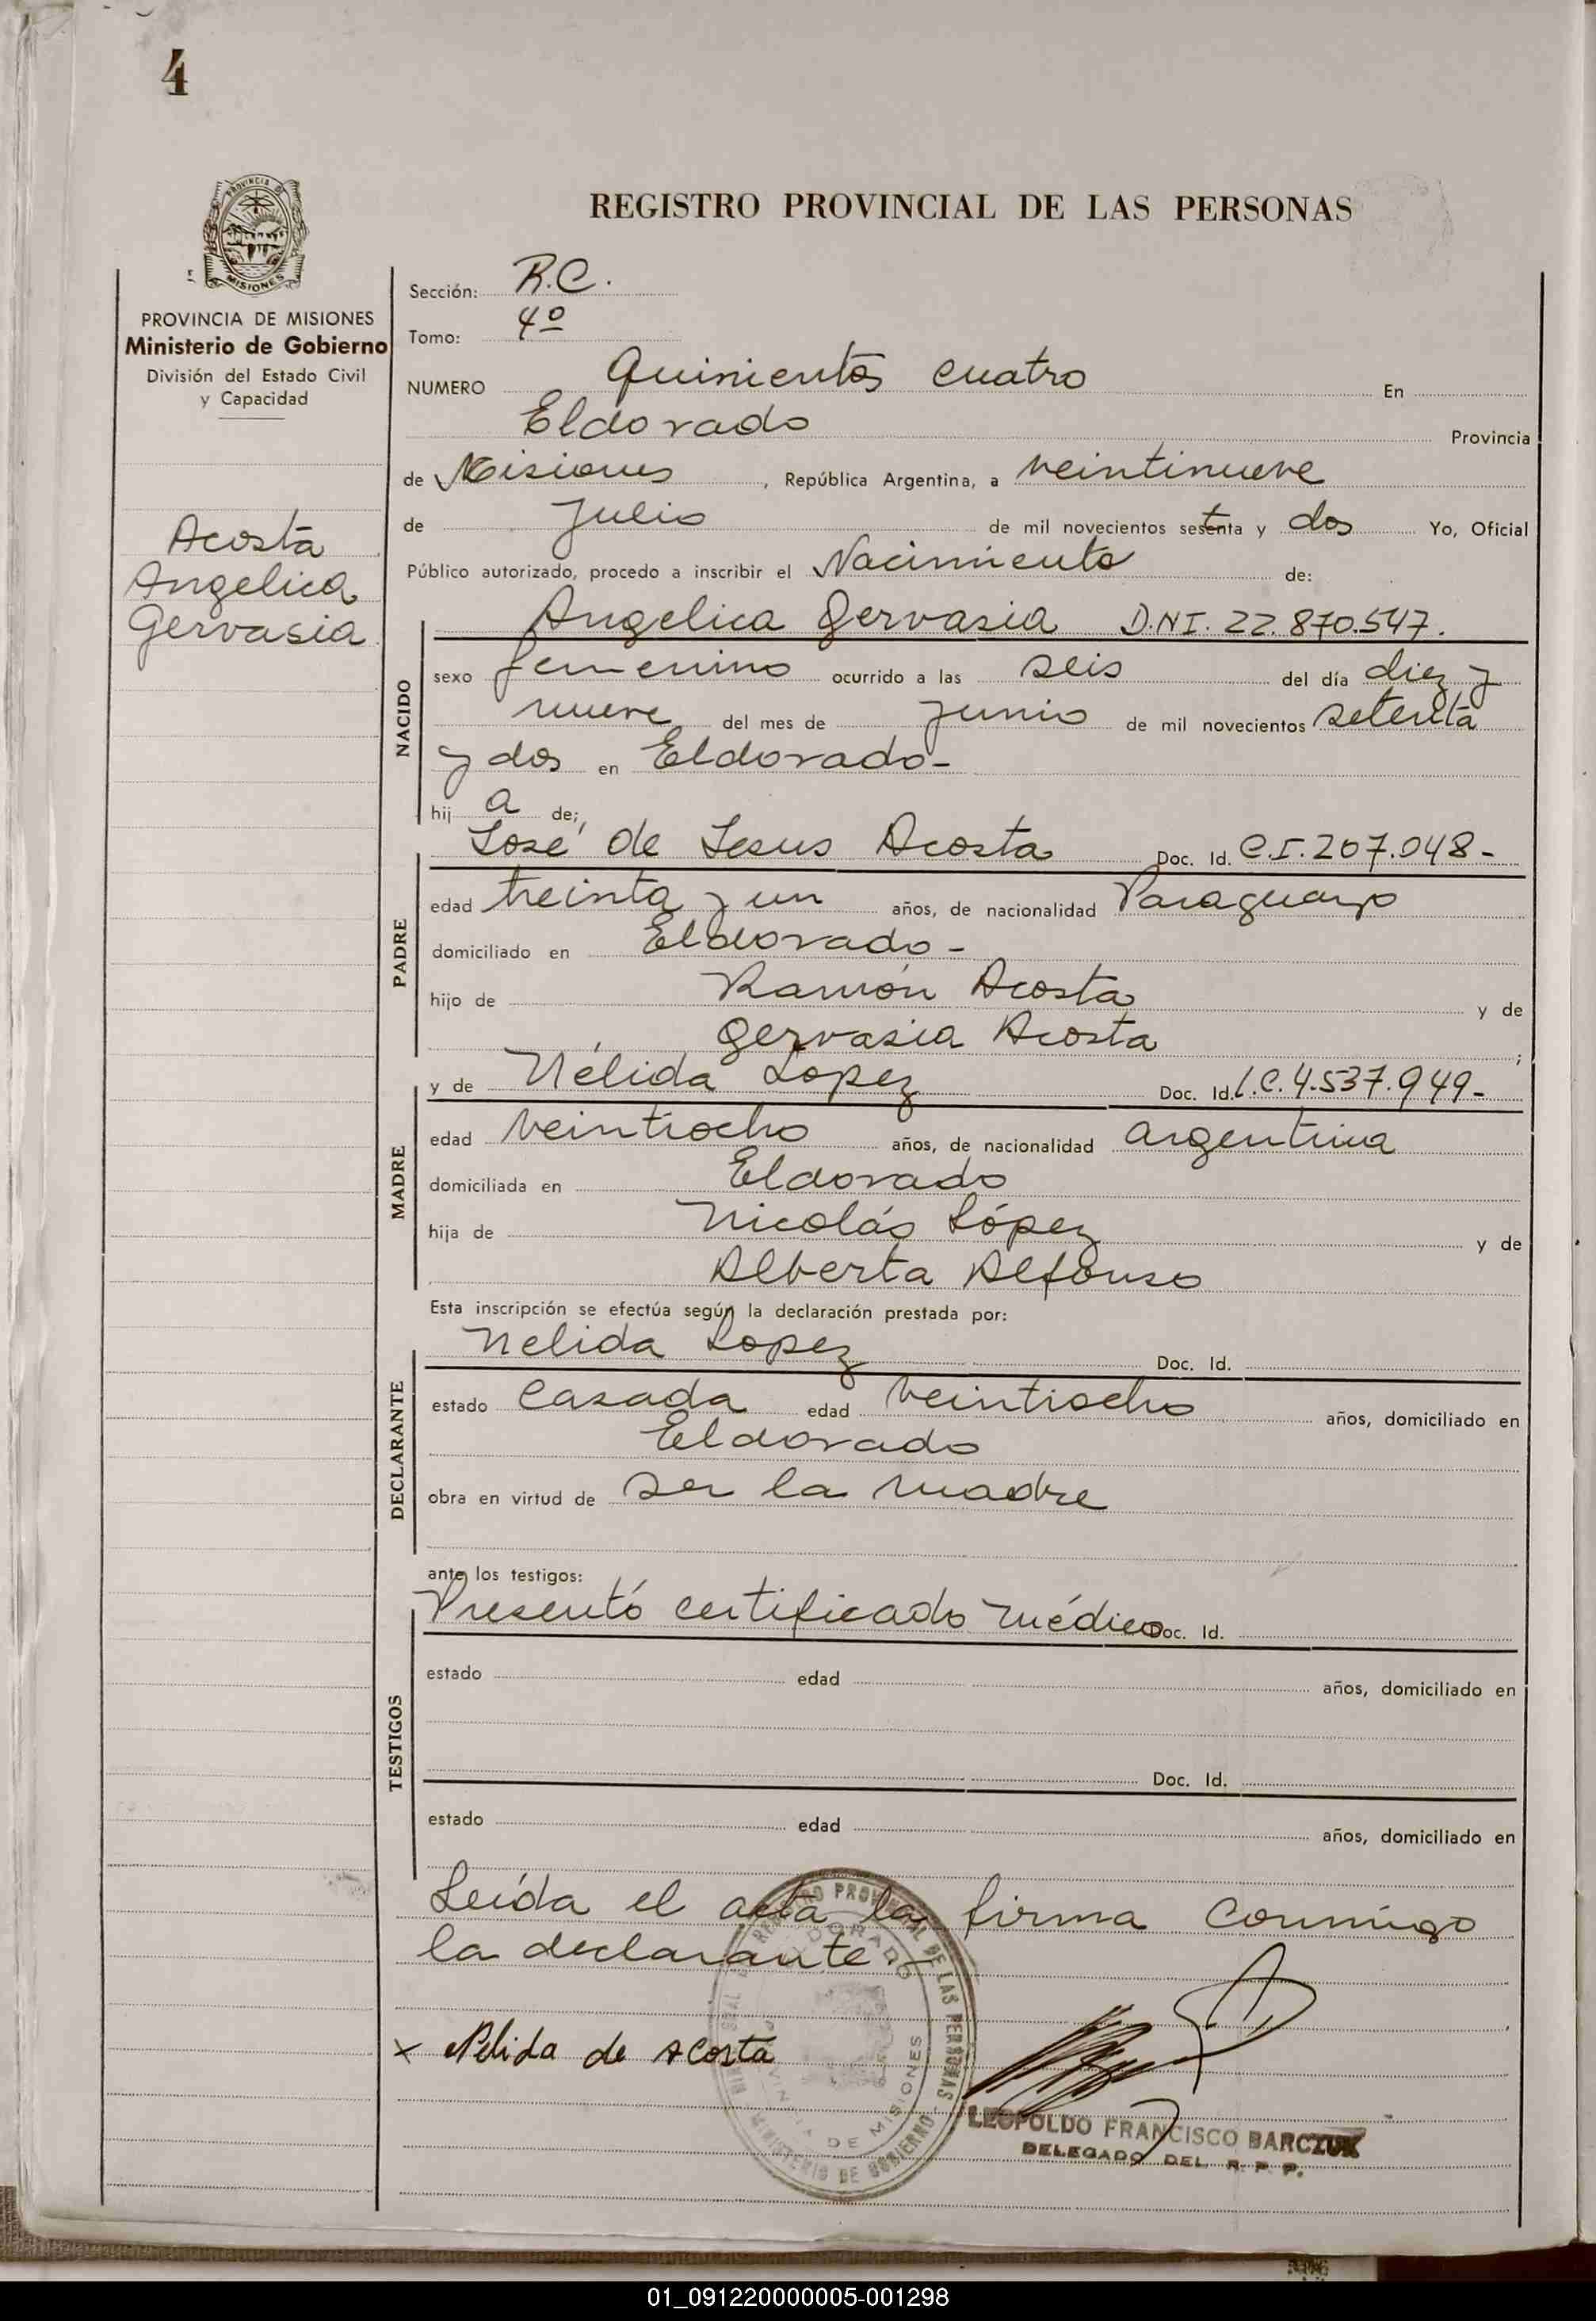 4
REGISTRO PROVINCIAL DE LAS PERSONAS
PROVINCIA DE MISIONES
Ministerio de Gobierno
División del Estado Civil
y Capacidad
Acosta
Angelica
Gervasia
Sección: R.C.
Tomo: 4º
NUMERO Quinientos cuatro En
Eldorado Provincia
de Misiones, República Argentina, a veintinueve
de Julio de mil novecientos setenta y dos Yo, Oficial
Público autorizado, procedo a inscribir el Nacimiento de:
Angelica Gervasia D.N.I. 22.870.547.
NACIDO
sexo femenino ocurrido a las seis del día diez y
nueve del mes de Junio de mil novecientos setenta
y dos en Eldorado-
hij a de;
José de Jesus Acosta Doc. Id. C.I. 207.048-
PADRE
edad treinta y un años, de nacionalidad Paraguayo
domiciliado en Eldorado-
hijo de Ramón Acosta y de
Gervasia Acosta ;
y de Nélida Lopez Doc. Id. L.C. 4.537.949-
MADRE
edad veintiocho años, de nacionalidad argentina
domiciliada en Eldorado
hija de Nicolás López y de
Alberta Alfonso
Esta inscripción se efectúa según la declaración prestada por:
Nelida Lopez Doc. Id.
DECLARANTE
estado casada edad veintiocho años, domiciliado en
Eldorado
obra en virtud de ser la madre
ante los testigos:
Presentó certificado médico Doc. Id.
TESTIGOS
estado edad años, domiciliado en
Doc. Id.
estado edad años, domiciliado en
Leída el acta la firma conmigo
la declarante.
x Nelida de Acosta
REGISTRO PROVINCIAL DE LAS PERSONAS
ELDORADO
PROVINCIA DE MISIONES
MINISTERIO DE GOBIERNO
LEOPOLDO FRANCISCO BARCZUK
DELEGADO DEL R. P. P.
01_091220000005-001298